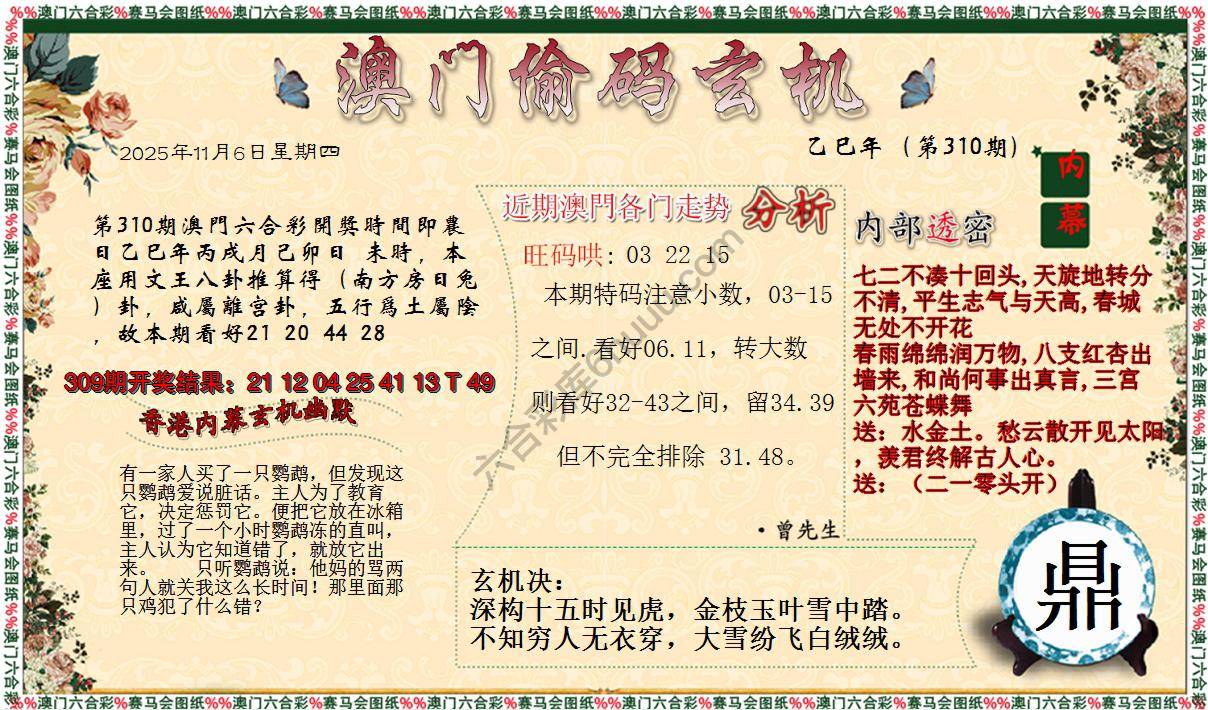 %%澳门六合彩%赛马会图纸%%澳门六合彩%赛马会图纸%%澳门六合彩%赛马会图纸%%澳门六合彩%赛马会图纸%%澳门六合彩%赛马会图纸%%澳门六合彩%赛马会图纸
澳门偷码玄机
2025年11月6日星期四
乙巳年（第310期）
内
幕
第310期澳門六合彩開獎時間即農
日乙巳年丙戌月己卯日 未時，本
座用文王八卦推算得（南方房日兔
）卦，咸屬離宫卦，五行爲土屬陰
，故本期看好21 20 44 28
309期开奖结果：21 12 04 25 41 13 T 49
香港内幕玄机幽默
有一家人买了一只鹦鹉，但发现这
只鹦鹉爱说脏话。主人为了教育
它，决定惩罚它。便把它放在冰箱
里，过了一个小时鹦鹉冻的直叫，
主人认为它知道错了，就放它出
来。　　只听鹦鹉说：他妈的骂两
句人就关我这么长时间！那里面那
只鸡犯了什么错？
近期澳門各门走势 分析
旺码哄: 03 22 15
本期特码注意小数，03-15
之间.看好06.11，转大数
则看好32-43之间，留34.39
但不完全排除 31.48。
·曾先生
内部透密
七二不凑十回头,天旋地转分
不清,平生志气与天高,春城
无处不开花
春雨绵绵润万物,八支红杏出
墙来,和尚何事出真言,三宫
六苑苍蝶舞
送：水金土。愁云散开见太阳
，羡君终解古人心。
送：（二一零头开）
玄机决：
深构十五时见虎，金枝玉叶雪中踏。
不知穷人无衣穿，大雪纷飞白绒绒。
鼎
%%澳门六合彩%赛马会图纸%%澳门六合彩%赛马会图纸%%澳门六合彩%赛马会图纸%%澳门六合彩%赛马会图纸%%澳门六合彩%赛马会图纸%%澳门六合彩%赛马会图纸